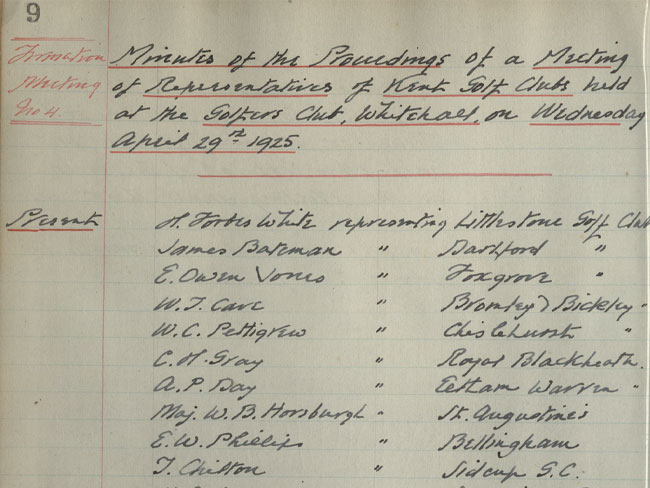 9
Formation
Meeting
No 4.
Minutes of the Proceedings of a Meeting
of Representatives of Kent Golf Clubs held
at the Golfers Club, Whitehall, on Wednesday
April 29th 1925.
Present
H. Forbes White representing Littlestone Golf Club
James Bateman " Dartford "
E. Owen Jones " Foxgrove "
W. T. Cave " Bromley & Bickley "
W. C. Pettigrew " Chislehurst "
C. H. Gray " Royal Blackheath.
A. P. Day " Eltham Warren "
Maj. W. B. Horsburgh " St. Augustine's
E. W. Phillips " Bellingham
T. Chilton " Sidcup G.C.